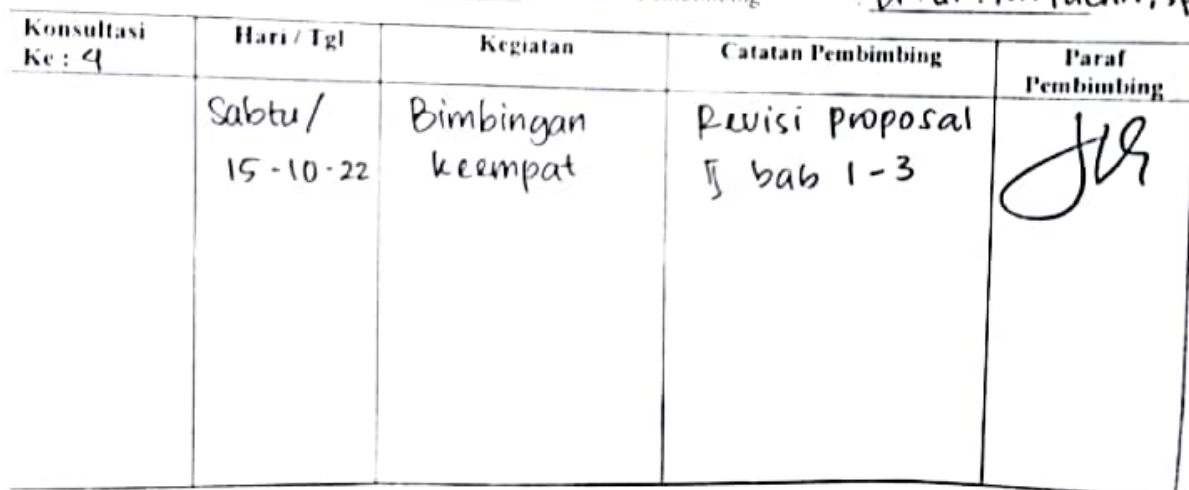 Konsultasi Ke : 4
Hari / Tgl
Kegiatan
Catatan Pembimbing
Paraf Pembimbing
Sabtu/
15-10-22
Bimbingan
keempat
Revisi proposal
bab 1-3